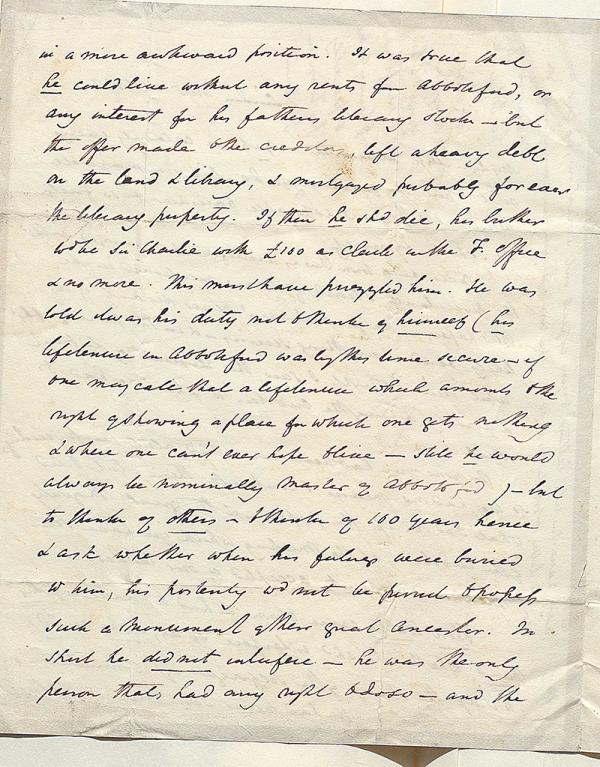 in a more awkward position. It was true that
he could live without any rents from Abbotsford, or
any interest for his fathers literary stock – but
the offer made to the creditors, left a heavy debt
on the land & library, & mortgaged probably for ever
the literary property. If then he shd die, his brother
wd be Sir Charlie with £100 as clerk in the F. office
& no more. This must have puzzled him. He was
told it was his duty not to think of himself (his
life tenure in Abbotsford was by this time secure – if
one may call that a life tenure which amounts to the
right of showing a place for which one gets nothing
& where one can't ever hope to live – still he would
always be nominally master of Abbotsford) – but
to think of others – to think of 100 years hence
& ask whether when his failings were buried
w him, his posterity wd not be proud to possess
such a monument of their great Ancestor. In
short he did not interfere – he was the only
person that had any right to do so – and the